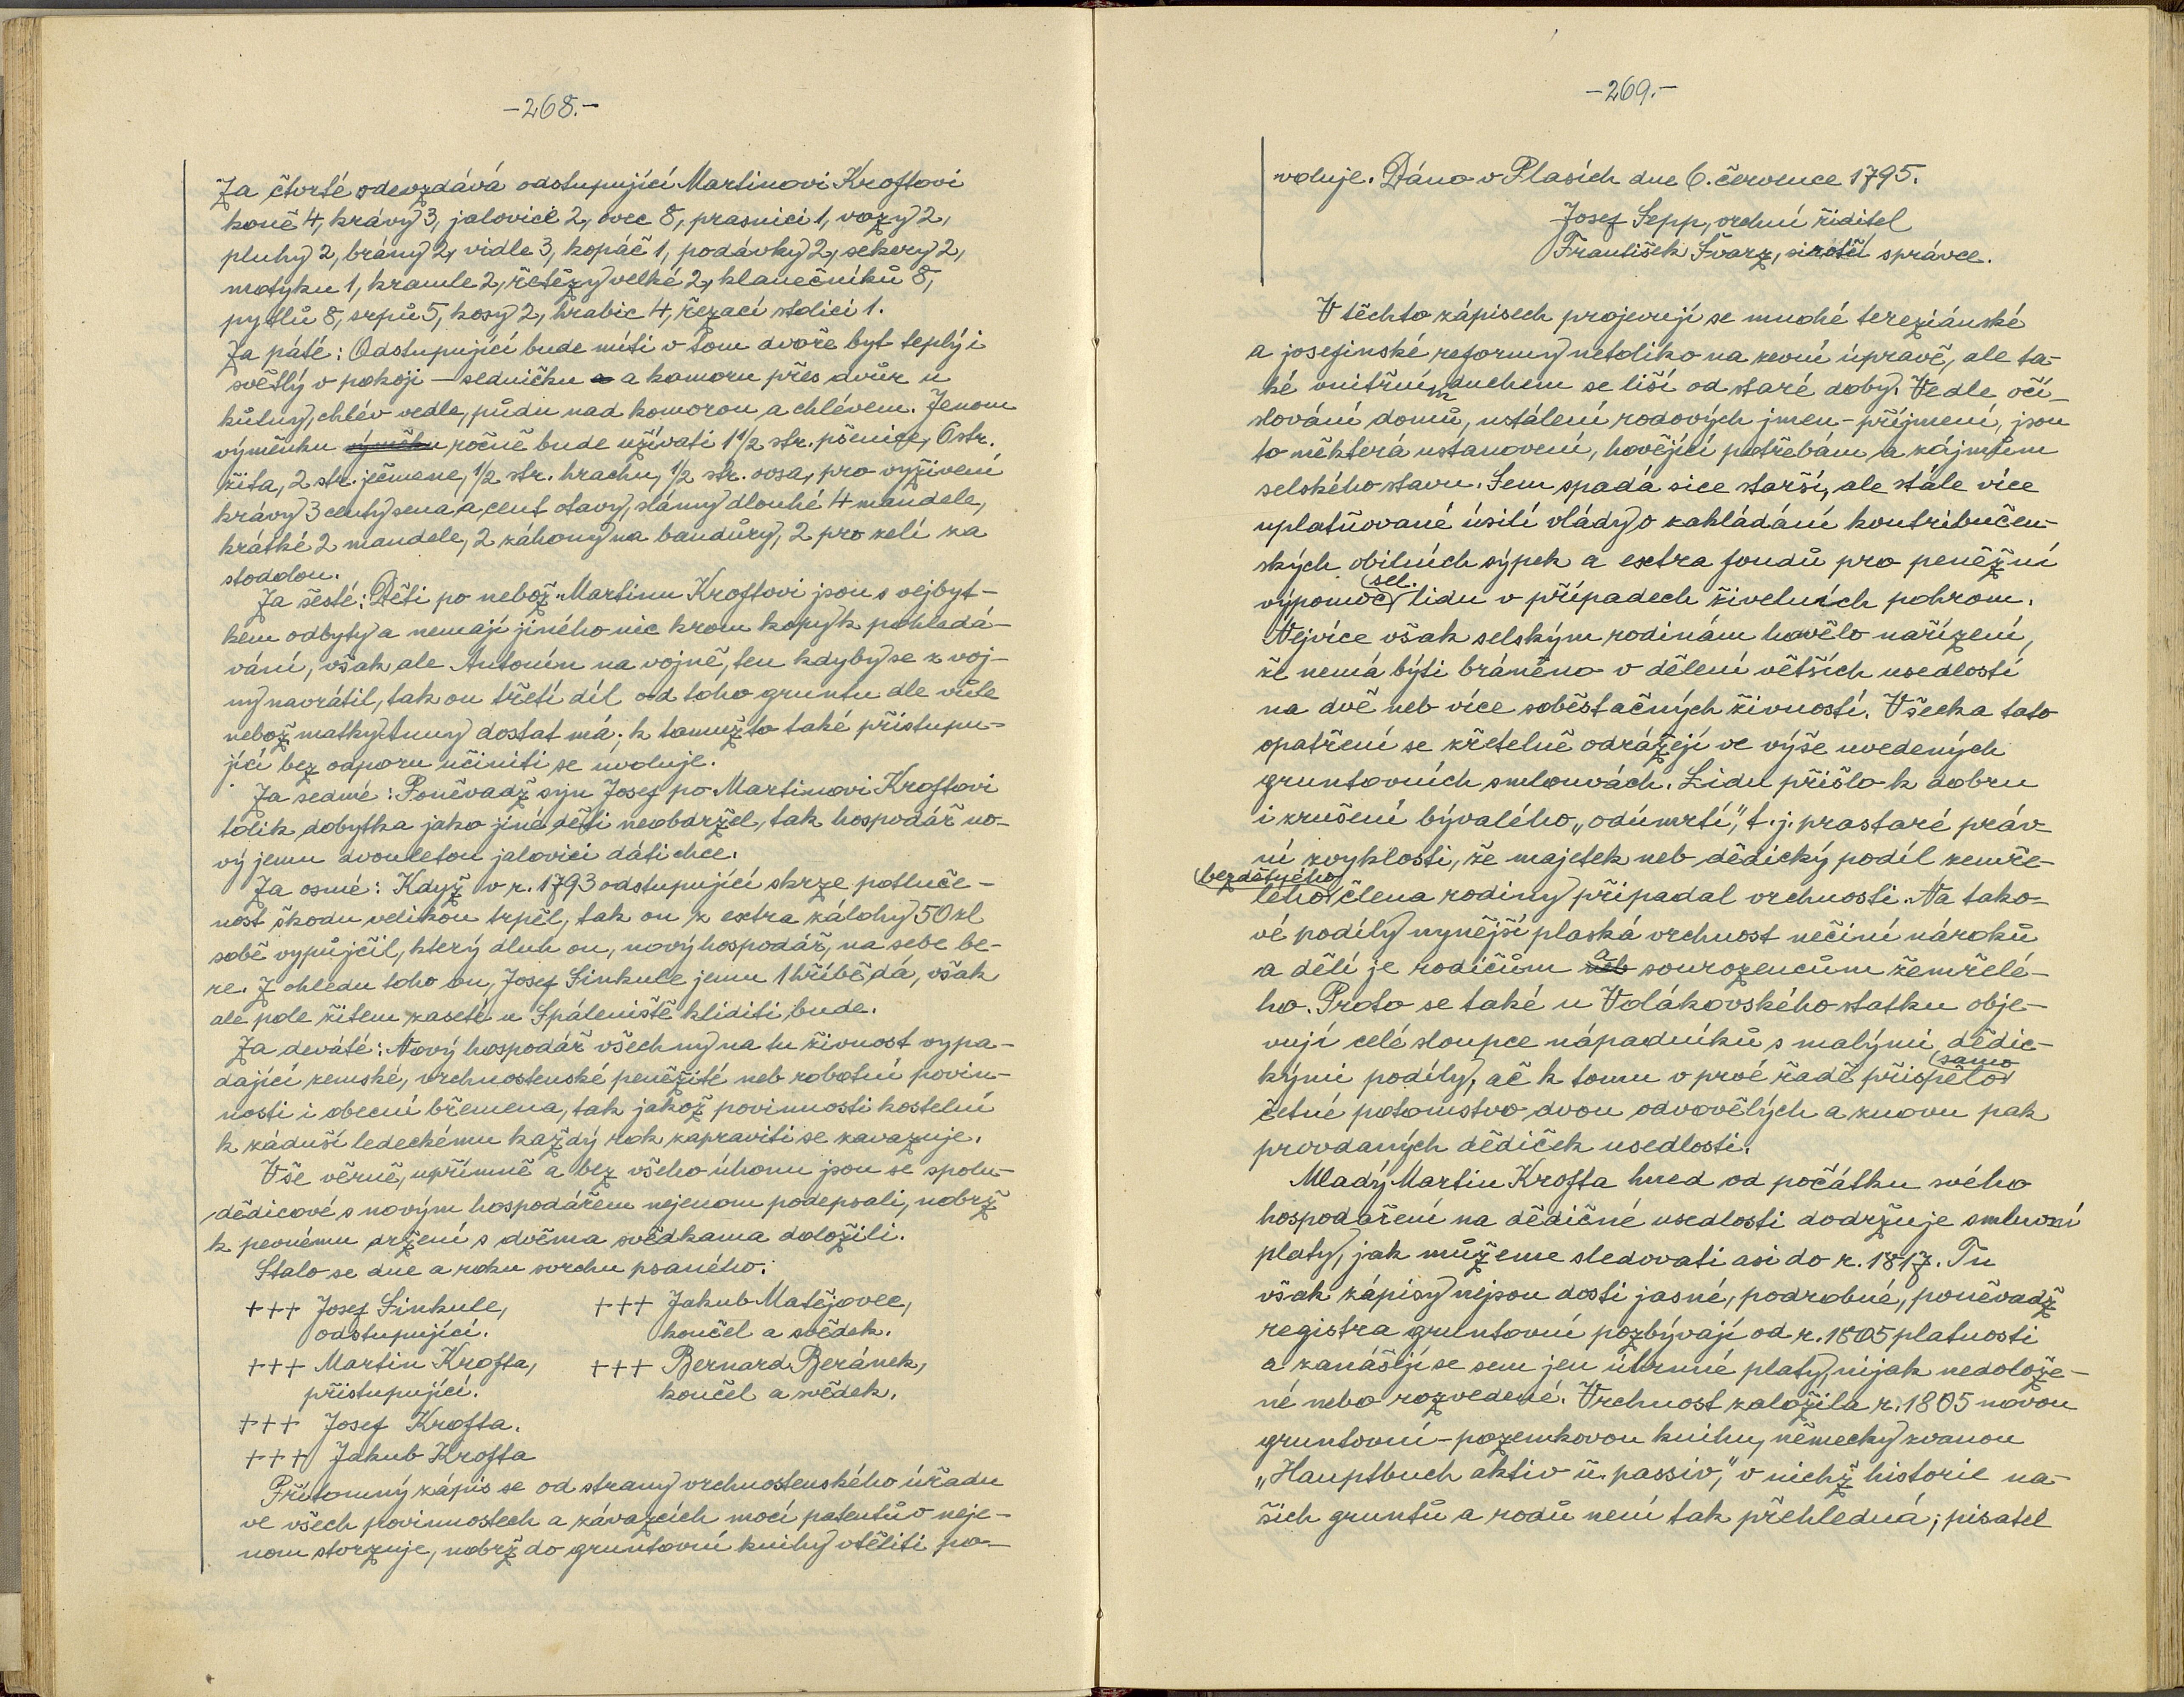 -268.-
Za čtvrté odevzdává odstupující Martinovi Kroftovi
koně 4, krávy 3, jalovice 2, ovec 8, prasnici 1, vozy 2,
pluhy 2, brány 2, vidle 3, kopáč 1, podávky 2, sekery 2,
motyku 1, kramle 2, řetězy velké 2, klanečníků 8,
pytlů 8, srpů 5, kosy 2, hrabic 4, řezací stolici 1.
Za páté: Odstupující bude míti v tom dvoře byt teplý i
světlý v pokoji – sedničku a komoru přes dvůr u
kůlny, chlév vedle, půdu nad komorou a chlévem. Jenom
výměnku ročně bude užívati 1 1/2 str. pšenice, 6 str.
žita, 2 str. ječmene, 1/2 str. hrachu, 1/2 str. ovsa, pro vyživení
krávy 3 centy sena a cent otavy, slámy dlouhé 4 mandele,
krátké 2 mandele, 2 záhony na bandůry, 2 pro zelí za
stodolou.
Za šesté: Děti po nebož. Martinu Kroftovi jsou s vejbyt-
kem odbyty a nemají jiného nic krom kopy k pohledá-
vání, však ale Antonín na vojně, ten kdyby se z voj-
ny navrátil, tak on třetí díl od toho gruntu dle vůle
nebož matky Anny dostat má; k tomužto také přistupu-
jící bez odporu učiniti se uvoluje.
Za sedmé: Poněvadž syn Josef po Martinovi Kroftovi
tolik dobytka jako jiné děti neobdržel, tak hospodář no-
vý jemu dvouletou jalovici dáti chce.
Za osmé: Když v r. 1793 odstupující skrze potluče-
nost škodu velikou trpěl, tak on z extra zálohy 50 zl
sobě vypůjčil, který dluh on, nový hospodář, na sebe be-
re. Z ohledu toho on, Josef Sinkule jemu 1 hříbě dá, však
ale pole žitem zaseté u Spáleniště kliditi bude.
Za deváté: Nový hospodář všechny na tu živnost vypa-
dající zemské, vrchnostenské peněžité neb robotní povin-
nosti i obecní břemena, tak jakož povinnosti kostelní
k záduší ledeckému každý rok zapraviti se zavazuje.
Vše věrně, upřímně a bez všeho úhonu jsou se spolu-
dědicové s novým hospodářem nejenom podepsali, nobrž
k pevnému držení s dvěma svědkama doložili.
Stalo se dne a roku svrchu psaného:
+++ Josef Sinkule, +++ Jakub Matějovec,
odstupující. končel a svědek.
+++ Martin Krofta, +++ Bernard Beránek,
přistupující. končel a svědek.
+++ Josef Krofta.
+++ Jakub Krofta
Přítomný zápis se od strany vrchnostenského úřadu
ve všech povinnostech a závazcích mocí patentův neje-
nom stvrzuje, nobrž do gruntovní knihy vtěliti po-
-269.-
voluje. Dáno v Plasích dne 6. července 1795.
Josef Sepp, vrchní ředitel
František Švarz, sirotčí správce.
V těchto zápisech projevují se mnohé tereziánské
a josefinské reformy netoliko na zevní úpravě, ale ta-
ké vnitřním duchem se liší od staré doby. Vedle očí-
slování domů, ustálení rodových jmen – příjmení, jsou
to některá ustanovení, hovějící potřebám a zájmům
selského stavu. Sem spadá sice starší, ale stále více
uplatňované úsilí vlády o zakládání kontribučen-
ských obilních sýpek a extra fondů pro peněžní
výpomoc sel. lidu v případech živelních pohrom.
Nejvíce však selským rodinám hovělo nařízení,
že nemá býti bráněno v dělení větších usedlostí
na dvě neb více soběstačných živností. Všecka tato
opatření se zřetelně odrážejí ve výše uvedených
gruntovních smlouvách. Lidu přišlo k dobru
i zrušení bývalého „odúmrtí“, t. j. prastaré práv-
ní zvyklosti, že majetek neb dědický podíl zemře-
lého bezdětného člena rodiny připadal vrchnosti. Na tako-
vé podíly nynější plaská vrchnost nečiní nároků
a dělí je rodičům a sourozencům zemřelé-
ho. Proto se také u Volákovského statku obje-
vují celé sloupce nápadníků s malými dědic-
kými podíly, ač k tomu v prvé řadě přispělo samo
četné potomstvo dvou odvovělých a znovu pak
provdaných dědiček usedlosti.
Mladý Martin Krofta hned od počátku svého
hospodaření na dědičné usedlosti dodržuje smluvní
platy, jak můžeme sledovati asi do r. 1817. Tu
však zápisy nejsou dosti jasné, podrobné, poněvadž
registra gruntovní pozbývají od r. 1805 platnosti
a zanášejí se sem jen úhrnné platy, nijak nedolože-
né nebo rozvedené. Vrchnost založila r. 1805 novou
gruntovní – pozemkovou knihu, německy zvanou
„Hauptbuch aktiv u. passiv“, v nichž historie na-
šich gruntů a rodů není tak přehledná; pisatel